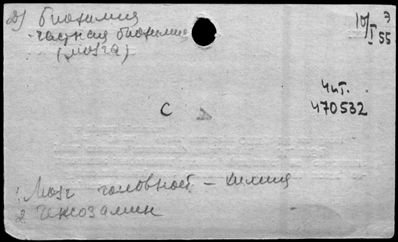 д) Биохимия
- частная биохимия
(мозга)
10/I 55
Э
Чит.
470532
С
Д
1. Мозг головной – химия
2 Гексозамин